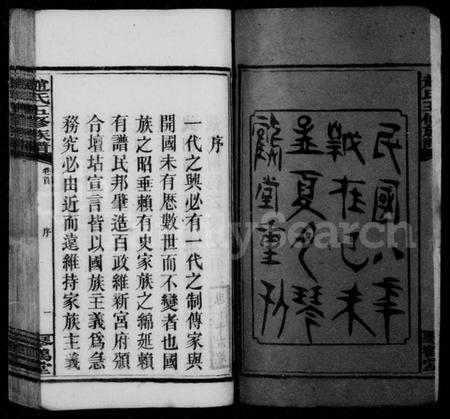 民國八年
歲在己未
孟夏月琴
鶴堂重刊
趙氏五修族譜
序
一代之興必有一代之制傳家與
開國未有懸數世而不變者也國
族之昭垂賴有史家族之綿延賴
有譜民邦肇造百政維新宮府頒
令壇坫宣言皆以國族主義爲急
務究必由近而遠維持家族主義
趙氏五修族譜
卷首
序
一
琴鶴堂